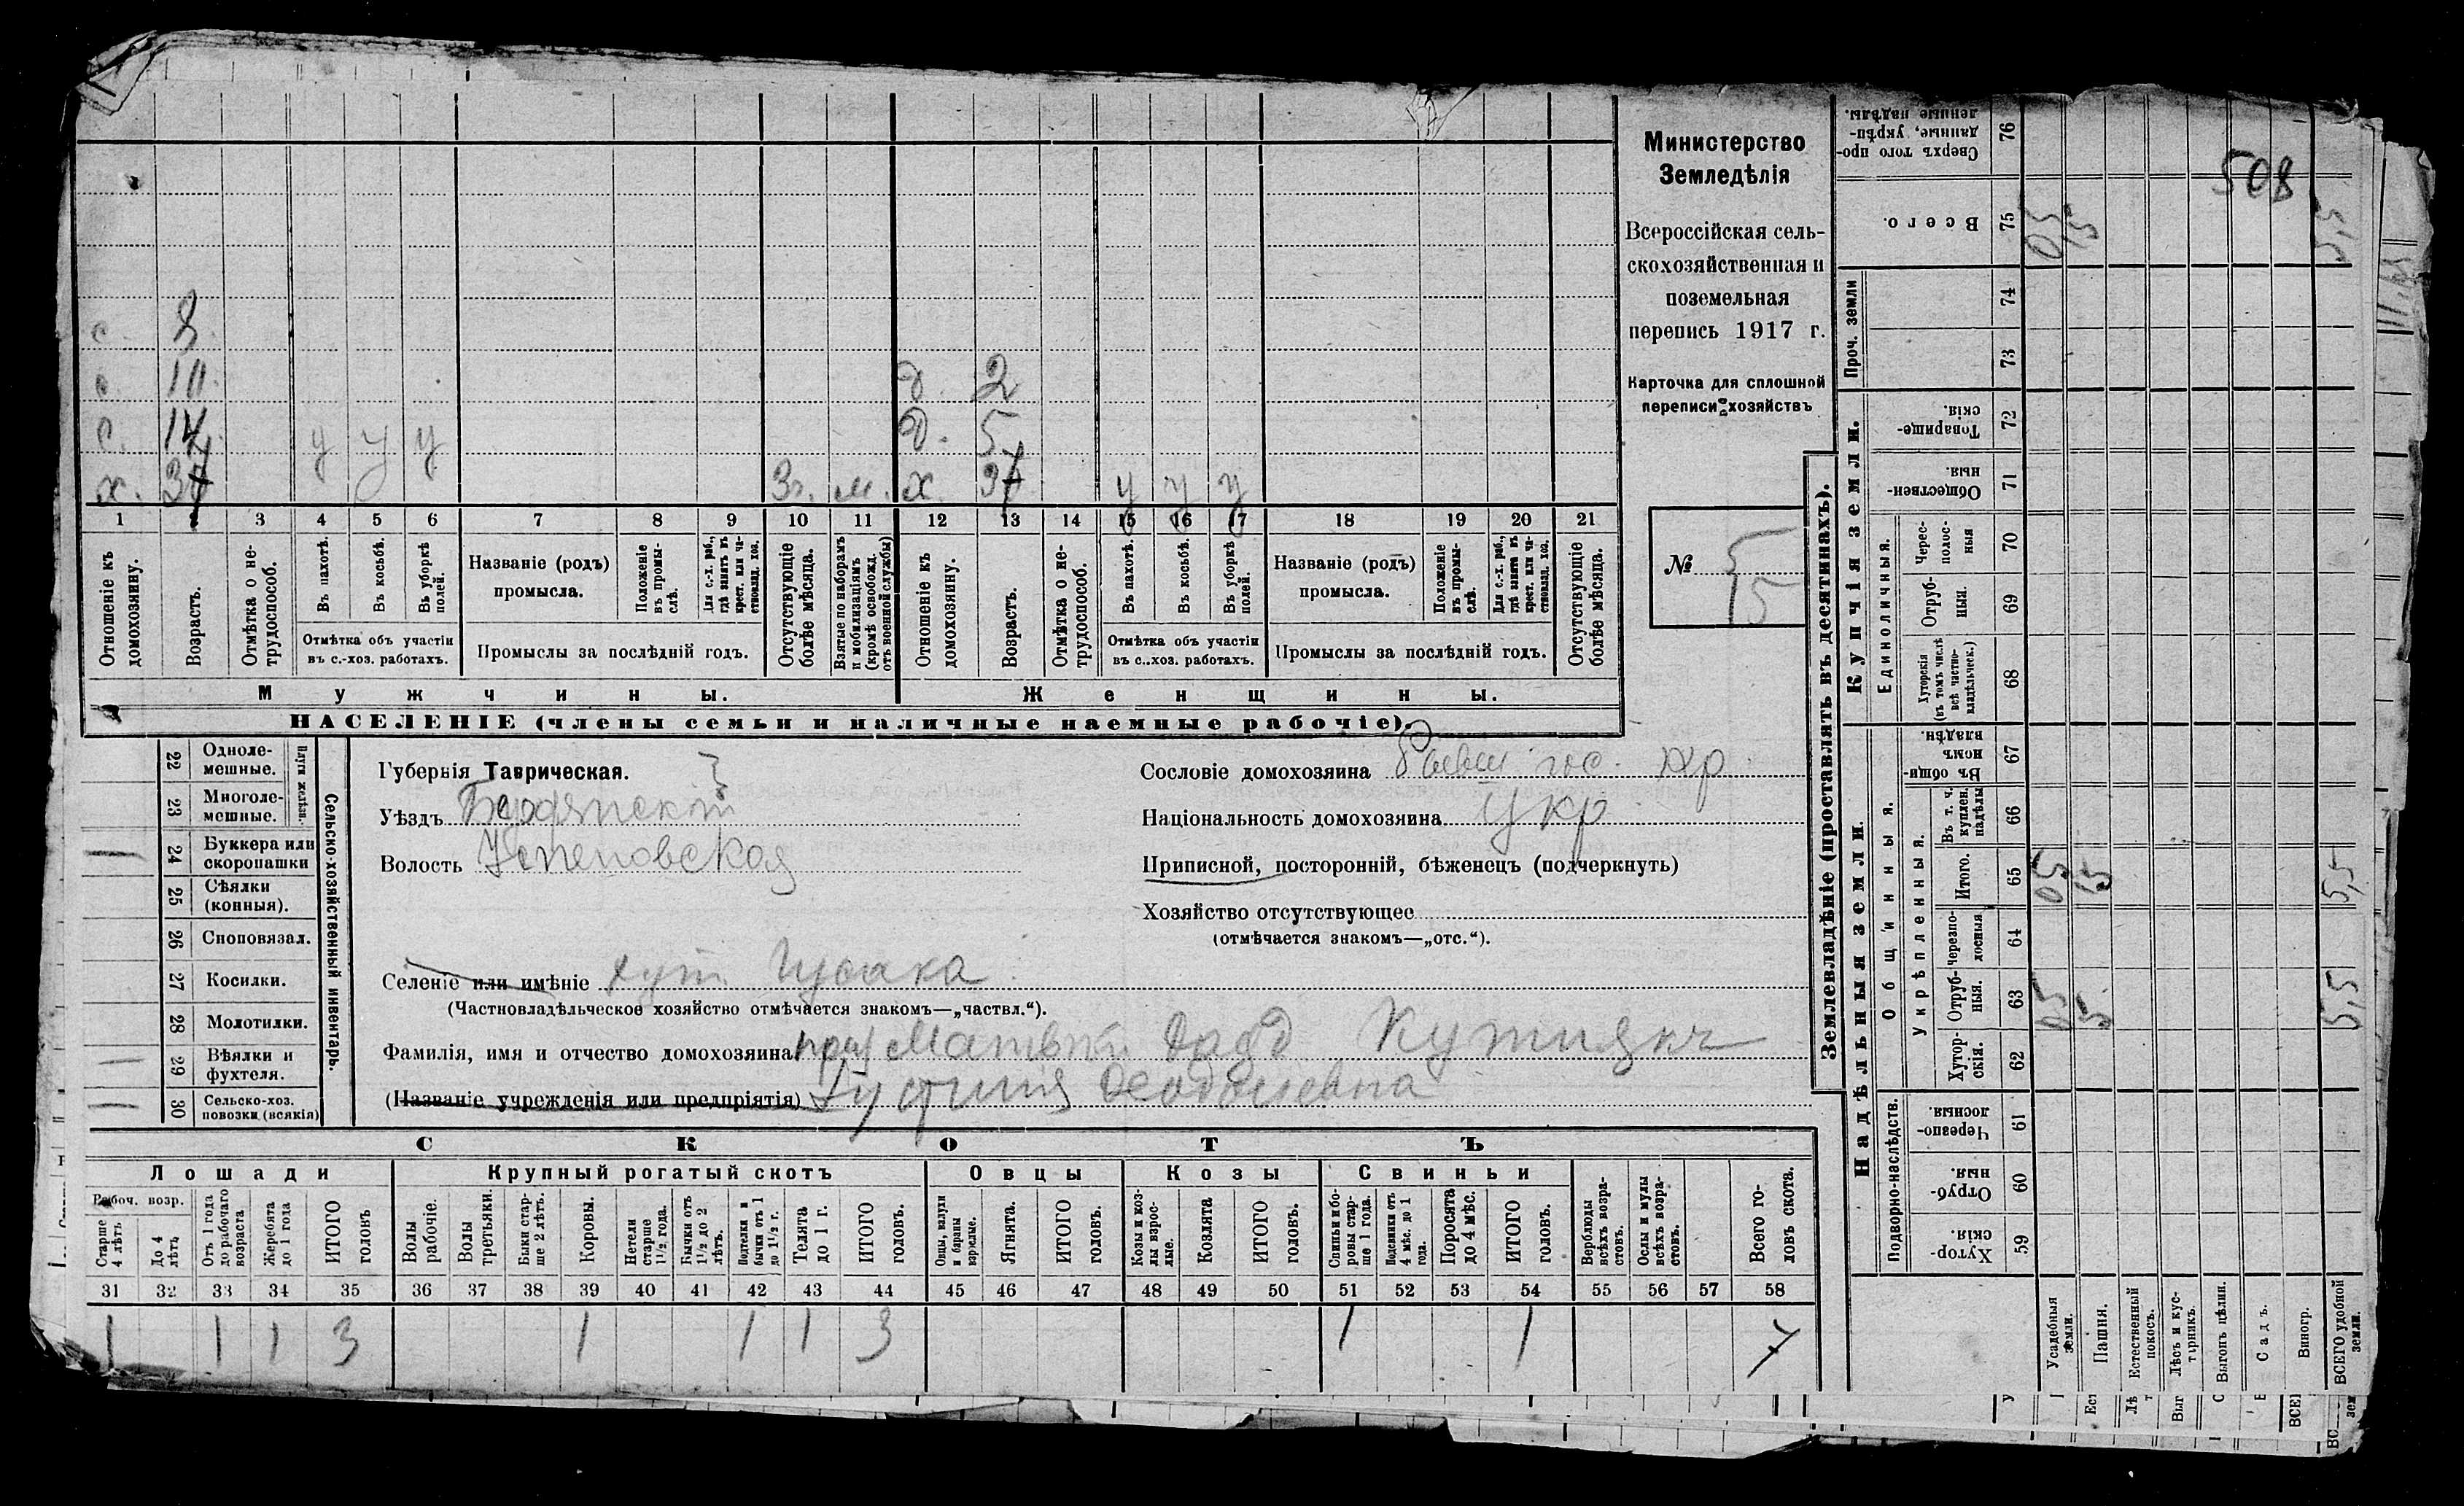 508
Министерство
Земледѣлія
Всероссійская сель-
скохозяйственная и
поземельная
перепись 1917 г.
Карточка для сплошной
переписи хозяйствъ
№ 5
15
с. 8
с. 11. д. 2
с. 14 у у у д. 5
х. 37 3г. м. х. 37 у у у
1 2 3 4 5 6 7 8 9 10 11 12 13 14 15 16 17 18 19 20 21
Отношеніе къ домохозяину.
Возрастъ.
Отмѣтка о не-трудоспособ.
Въ пахотѣ.
Въ косьбѣ.
Въ уборкѣ полей.
Отмѣтка объ участіи въ с.-хоз. работахъ.
Названіе (родъ) промысла.
Положеніе въ промы-слѣ.
Для с.-х. раб., гдѣ занятъ въ крест. или ча-стновлад. хоз.
Промыслы за послѣдній годъ.
Отсутствующіе болѣе мѣсяца.
Взятые по наборамъ и мобилизаціямъ (кромѣ освобожд. отъ военной службы)
Отношеніе къ домохозяину.
Возрастъ.
Отмѣтка о не-трудоспособ.
Въ пахотѣ.
Въ косьбѣ.
Въ уборкѣ полей.
Отмѣтка объ участіи въ с.-хоз. работахъ.
Названіе (родъ) промысла.
Положеніе въ промы-слѣ.
Для с.-х. раб., гдѣ занята въ крест. или ча-стновлад. хоз.
Промыслы за послѣдній годъ.
Отсутствующіе болѣе мѣсяца.
Мужчины. Женщины.
НАСЕЛЕНІЕ (члены семьи и наличные наемные рабочіе).
Сельско-хозяйственный инвентарь.
Плуги желѣзн.
22 Одноле-мешные.
23 Многоле-мешные.
24 Буккера или скоропашки
25 Сѣялки (конныя).
26 Сноповязал.
27 Косилки.
28 Молотилки.
29 Вѣялки и фухтеля.
30 Сельско-хоз. повозки (всякія)
Губернія Таврическая.
Уѣздъ Бердянскій
Волость Успеновская
Сословіе домохозяина бывш гос. кр
Національность домохозяина укр
Приписной, посторонній, бѣженецъ (подчеркнуть)
Хозяйство отсутствующее
(отмѣчается знакомъ—„отс.“).
Селеніе или имѣніе хут
(Частновладѣльческое хозяйство отмѣчается знакомъ—„частвл.“).
Фамилія, имя и отчество домохозяина Матвѣй
(Названіе учрежденія или предпріятія)
СКОТЪ
Лошади Крупный рогатый скотъ Овцы Козы Свиньи
Рабоч. возр.
Старше 4 лѣтъ
До 4 лѣтъ
Отъ 1 года до рабочаго возраста
Жеребята до 1 года
ИТОГО головъ
Волы рабочіе.
Волы третьяки.
Быки стар-ше 2 лѣтъ.
Коровы.
Нетели старше 1½ года.
Бычки отъ 1½ до 2 лѣтъ.
Подтелки и бычки отъ 1 до 1½ г.
Телята до 1 г.
ИТОГО головъ.
Овцы, валухи и бараны взрослые.
Ягнята.
ИТОГО головъ.
Козы и коз-лы взрос-лые.
Козлята
ИТОГО головъ.
Свиньи и бо-ровы стар-ше 1 года.
Подсвинки отъ 4 мѣс. до 1 года.
Поросята до 4 мѣс.
ИТОГО головъ.
Верблюды всѣхъ возра-стовъ.
Ослы и мулы всѣхъ возра-стовъ.
Всего го-ловъ скота.
31 32 33 34 35 36 37 38 39 40 41 42 43 44 45 46 47 48 49 50 51 52 53 54 55 56 57 58
1 1 1 3 1 1 1 3 1 1 7
Землевладѣніе (проставлять въ десятинахъ).
Надѣльныя земли.
Купчія земли.
Проч. земли
Подворно-наслѣдств.
Общинныя.
Укрѣпленныя.
Единоличныя.
Сверхъ того про-данные, укрѣп-ленные надѣлы. 76
Всего. 75 0,5 5 5,5
74
73
Товарище-скія. 72
Обществен-ныя. 71
Черес-полос-ныя 70
Отруб-ныя. 69
Хуторскія (въ томъ числѣ всѣ частно-владѣльческ.) 68
Въ общин-номъ владѣн. 67
Въ т. ч. куплен. надѣлы 66
Итого. 65 0,5 5 5,5
Черезпо-лосныя 64
Отруб-ныя. 63 0,5 5 5,5
Хутор-скія. 62
Черезпо-лосныя. 61
Отруб-ныя. 60
Хутор-скія. 59
Усадебныя земли.
Пашня.
Естественный покосъ.
Лѣсъ и кус-тарникъ.
Выгонъ цѣлин.
Садъ.
Виногр.
ВСЕГО удобной земли.